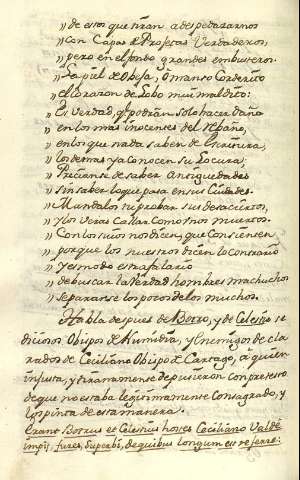 ,, de estos que tiran a despedazarnos
,, con Capas de Profetas Verdaderos,
,, pero en el fondo grandes embusteros.
,, La piel de Obeja, o manso Corderito
,, el corazon de Lobo mui maldito:
,, Es Verdad, qe podran solo hacer daño
,, en los mas inocentes del rebaño,
,, en los que nada saben de Escritura,
,, los demas ya conocen su Locura;
,, Precianse de saber Antiguedades
,, sin saber lo que pasa en sus Ciudades.
,, Mandalos tu probar sus desaciertos,
,, y los veras Callar como unos muertos.
,, Con los suios nos dicen, que Consienten
,, porque los nuestros dicen lo contrario
,, y es modo estrafalario
,, de buscar la Verdad hombres machuchos
,, separarse los pocos de los muchos.
Habla despues de Botro, y de Celestio se
diciosos Obispos de Numidia, y Enemigos de cla
rados de Ceciliano Obispo de Cartago, a quien
injusta, y tiranamente depusieron con pretesto
de que no estaba legitimamente Consagrado, y
los pinta de esta manera.
Erant Botrus et Celestius hostes Ceciliano Valde
impij, fures, superbi, de quibus longum est referre: